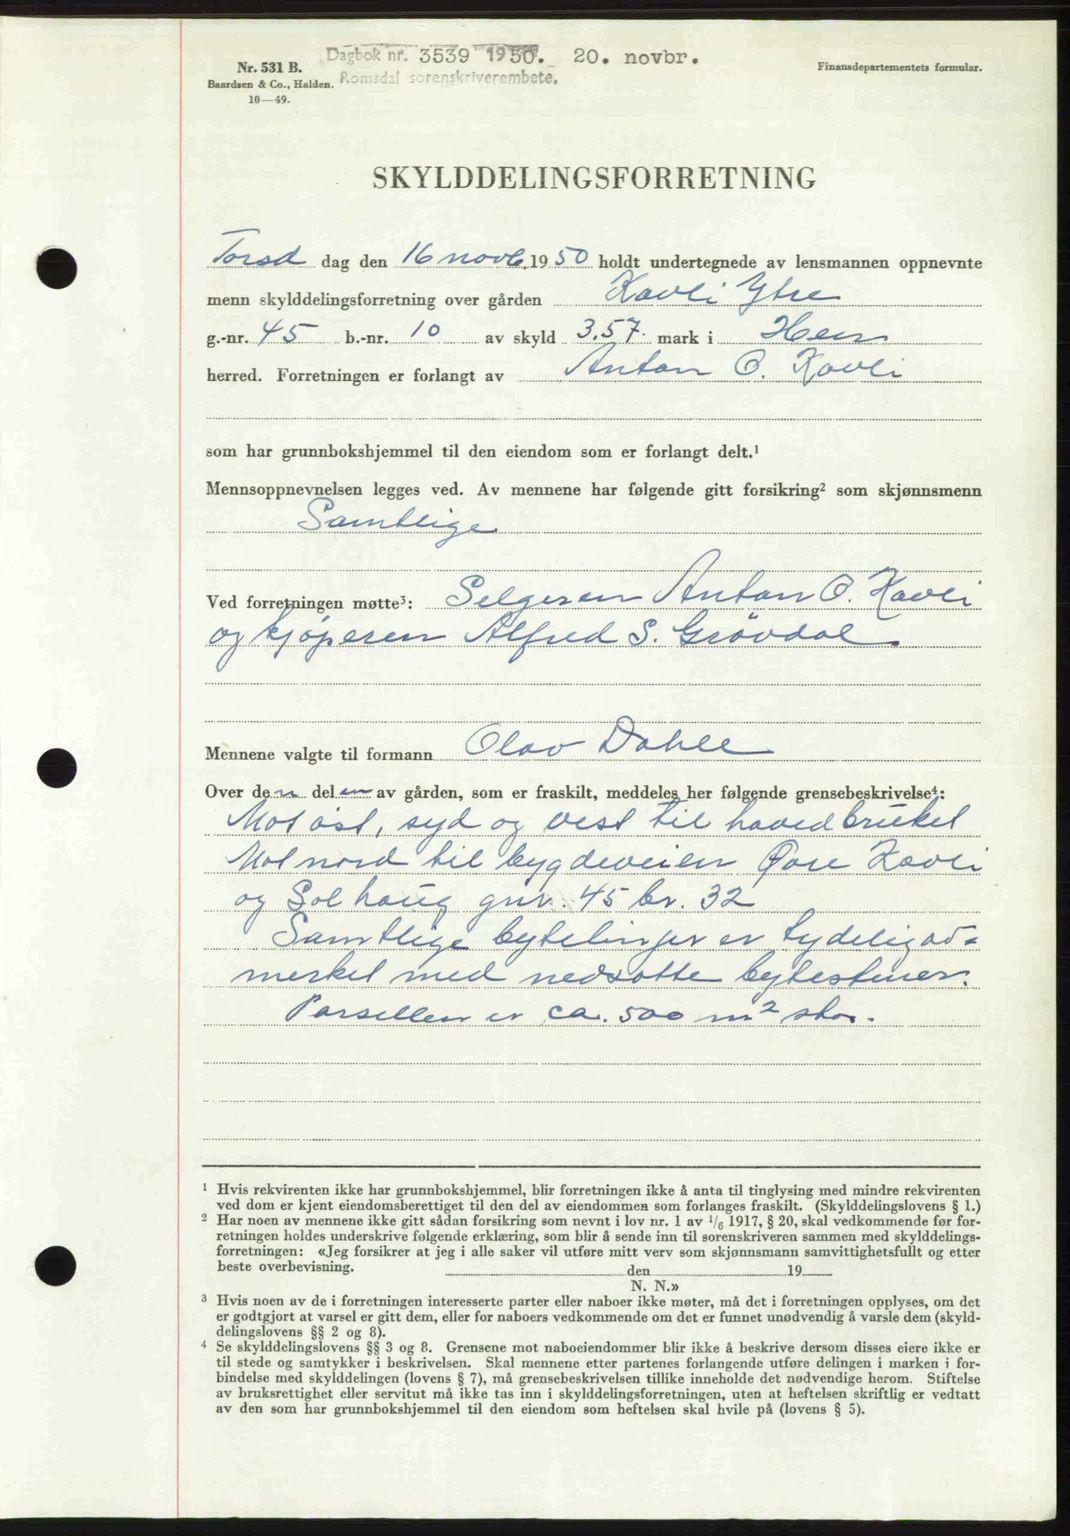 Dagbok nr. 3539 1950. 20. novbr.
Romsdal sorenskriverembete.
Nr. 531 B.
Baardsen & Co., Halden.
10—49.
Finansdepartementets formular.
SKYLDDELINGSFORRETNING
Torsd dag den 16 novb. 1950 holdt undertegnede av lensmannen oppnevnte
menn skylddelingsforretning over gården Kavli Ytre
g.-nr. 45 b.-nr. 10 av skyld 3.57 mark i Hen
herred. Forretningen er forlangt av Anton O. Kavli
som har grunnbokshjemmel til den eiendom som er forlangt delt.¹
Mennsoppnevnelsen legges ved. Av mennene har følgende gitt forsikring² som skjønnsmenn
Samtlige
Ved forretningen møtte³: Selgeren Anton O. Kavli
og kjøperen Alfred S. Grøvdal.
Mennene valgte til formann Olav Dahle
Over den delen av gården, som er fraskilt, meddeles her følgende grensebeskrivelse⁴:
Mot øst, syd og vest til hovedbruket
Mot nord til bygdeveien Øvre Kavli
og Solhaug gnr. 45 br. 32
Samtlige bytelinjer er tydelig av=
merket med nedsatte bytesteiner.
Parsellen er ca. 500 m² stor.
¹ Hvis rekvirenten ikke har grunnbokshjemmel, blir forretningen ikke å anta til tinglysing med mindre rekvirenten
ved dom er kjent eiendomsberettiget til den del av eiendommen som forlanges fraskilt. (Skylddelingslovens § 1.)
² Har noen av mennene ikke gitt sådan forsikring som nevnt i lov nr. 1 av 1/6 1917, § 20, skal vedkommende før for-
retningen holdes underskrive følgende erklæring, som blir å sende inn til sorenskriveren sammen med skylddelings-
forretningen: «Jeg forsikrer at jeg i alle saker vil utføre mitt verv som skjønnsmann samvittighetsfullt og etter
beste overbevisning. den 19
N. N.»
³ Hvis noen av de i forretningen interesserte parter eller naboer ikke møter, må det i forretningen opplyses, om det
er godtgjort at varsel er gitt dem, eller for naboers vedkommende om det er funnet unødvendig å varsle dem (skyld-
delingslovens §§ 2 og 8).
⁴ Se skylddelingslovens §§ 3 og 8. Grensene mot naboeiendommer blir ikke å beskrive dersom disses eiere ikke er
til stede og samtykker i beskrivelsen. Skal mennene etter partenes forlangende utføre delingen i marken i for-
bindelse med skylddelingen (lovens § 7), må grensebeskrivelsen tillike inneholde det nødvendige herom. Stiftelse
av bruksrettighet eller servitut må ikke tas inn i skylddelingsforretningen, uten at heftelsen skriftlig er vedtatt
av den som har grunnbokshjemmel til den eiendom som heftelsen skal hvile på (lovens § 5).